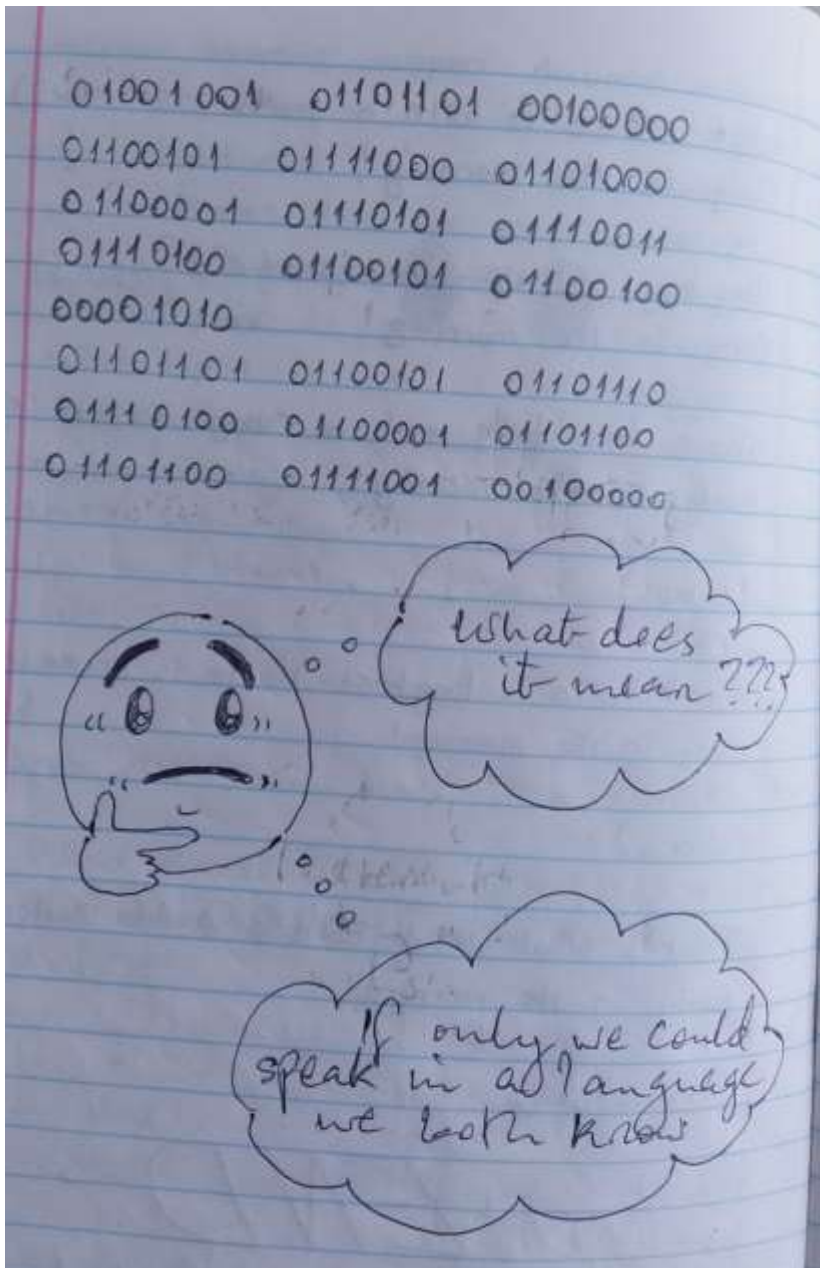 01001001 01101101 00100000
01100101 01111000 01101000
01100001 01110101 01110011
01110100 01100101 01100100
00001010
01101101 01100101 01101110
01110100 01100001 01101100
01101100 01111001 00100000
What does
it mean ???
If only we could
speak in a language
we both know